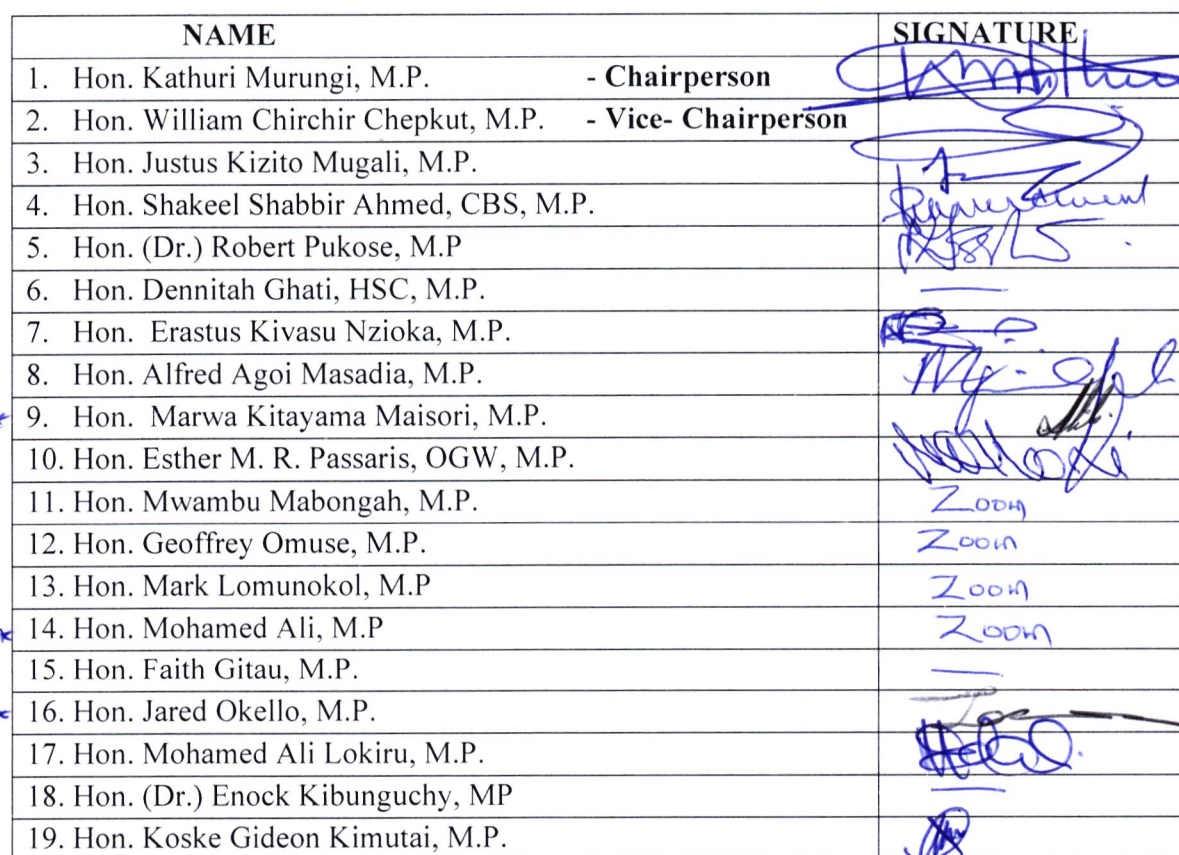 NAME SIGNATURE
1. Hon. Kathuri Murungi, M.P. - Chairperson
2. Hon. William Chirchir Chepkut, M.P. - Vice- Chairperson
3. Hon. Justus Kizito Mugali, M.P.
4. Hon. Shakeel Shabbir Ahmed, CBS, M.P.
5. Hon. (Dr.) Robert Pukose, M.P
6. Hon. Dennitah Ghati, HSC, M.P.
7. Hon. Erastus Kivasu Nzioka, M.P.
8. Hon. Alfred Agoi Masadia, M.P.
9. Hon. Marwa Kitayama Maisori, M.P.
10. Hon. Esther M. R. Passaris, OGW, M.P.
11. Hon. Mwambu Mabongah, M.P. Zoom
12. Hon. Geoffrey Omuse, M.P. Zoom
13. Hon. Mark Lomunokol, M.P Zoom
14. Hon. Mohamed Ali, M.P Zoom
15. Hon. Faith Gitau, M.P. —
16. Hon. Jared Okello, M.P.
17. Hon. Mohamed Ali Lokiru, M.P.
18. Hon. (Dr.) Enock Kibunguchy, MP
19. Hon. Koske Gideon Kimutai, M.P.